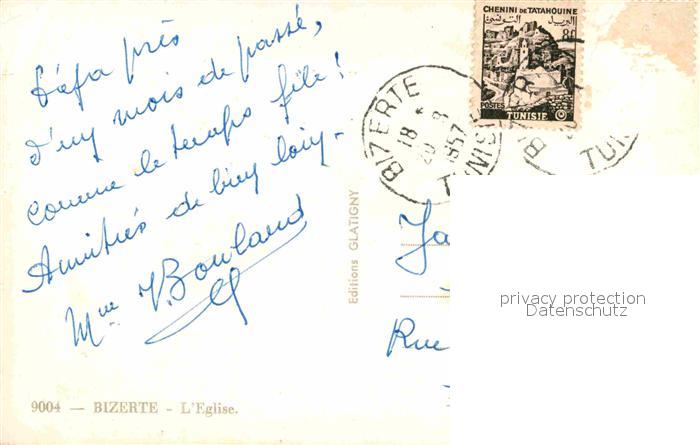 Déja près
d'un mois de passé,
comme le temps file!
Amitiés de bien loin-
Mme Y. Bouland
9004 — BIZERTE - L'Eglise.
Editions GLATIGNY
CHENINI DE TATAHOUINE
8f
POSTES
TUNISIE
BIZERTE
18 *
20 8
1957
TUNISIE
TUN
Ja
Rue
privacy protection
Datenschutz